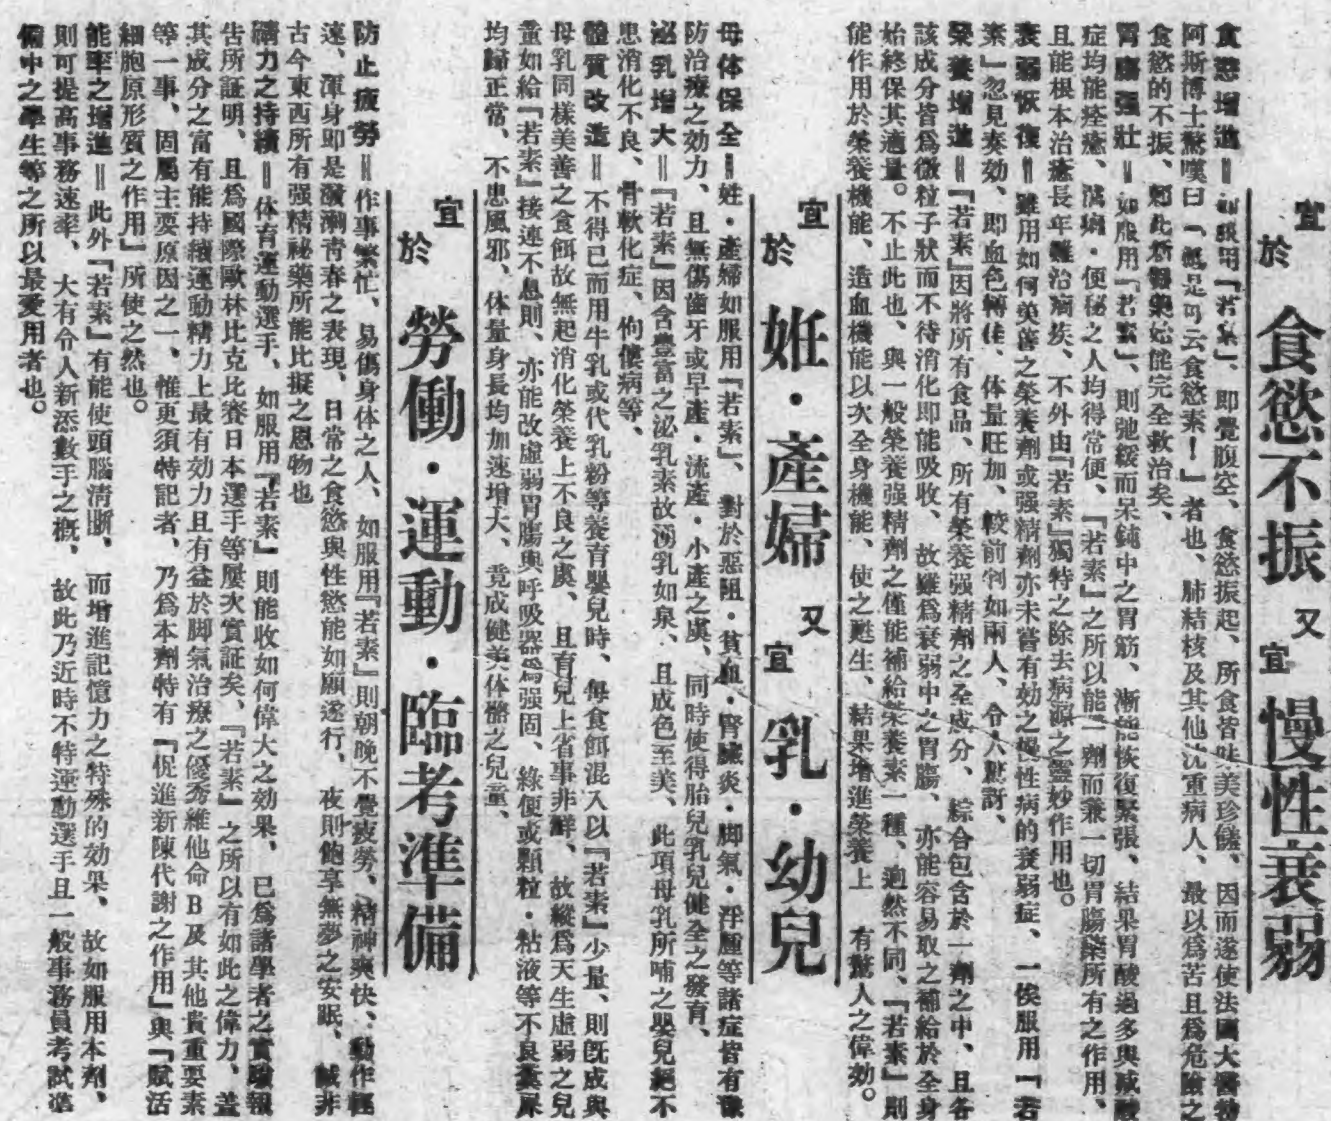 宜於 食慾不振 又宜 慢性衰弱
食慾增進＝如服用『若素』、即覺腹空、食慾振起、所食皆味美珍饈、因而遂使法國大醫
阿斯博士驚嘆曰『 是可云食慾素！』者也、肺結核及其他沈重病人、最以爲苦且爲危險之
食慾的不振、 此新醫藥始能完全救治矣、
胃腸强壯＝如服用『若素』、則弛緩而呆鈍中之胃筋、漸能恢復緊張、結果胃酸過多與減酸
症均能痊癒、瀉痢·便秘之人均得常便、『若素』之所以能一劑而兼一切胃腸藥所有之作用、
且能根本治癒長年難治痼疾、不外由『若素』獨特之除去病源之靈妙作用也。
衰弱恢復＝雖用如何美善之榮養劑或强精劑亦未嘗有効之慢性病的衰弱症、一俟服用『若
素』忽見奏効、即血色轉佳、体量旺加、較前判如兩人、令人驚訝、
榮養增進＝『若素』因將所有食品、所有榮養强精劑之全成分、綜合包含於一劑之中、且各
該成分皆爲微粒子狀而不待消化即能吸收、故雖爲衰弱中之胃腸、亦能容易取之補給於全身
始終保其適量。不止此也、與一般榮養强精劑之僅能補給榮養素一種、迥然不同、『若素』則
能作用於榮養機能、造血機能以次全身機能、使之甦生、結果增進榮養上 有驚人之偉効。
宜於 姙·產婦 又宜 乳·幼兒
母体保全＝姙·產婦如服用『若素』、對於惡阻·貧血·腎臟炎·脚氣·浮腫等諸症皆有豫
防治療之効力、且無傷齒牙或早產·流產·小產之虞、同時使得胎兒乳兒健全之發育、
泌乳增大＝『若素』因含豐富之泌乳素故湧乳如泉、且成色至美、此項母乳所哺之嬰兒絕不
患消化不良、骨軟化症、佝僂病等、
體質改造＝不得已而用牛乳或代乳粉等養育嬰兒時、每食餌混入以『若素』少量、則旣成與
母乳同樣美善之食餌故無起消化榮養上不良之虞、且育兒上省事非鮮、故縱爲天生虛弱之兒
童如給『若素』接連不息則、亦能改虛弱胃腸與呼吸器爲强固、綠便或顆粒·粘液等不良糞尿
均歸正常、不患風邪、体量身長均加速增大、竟成健美体骼之兒童、
宜於 勞働·運動·臨考準備
防止疲勞＝作事繁忙、易傷身体之人、如服用『若素』則朝晚不覺疲勞、精神爽快、動作輕
速、渾身即是潑溂青春之表現、日常之食慾與性慾能如願遂行、夜則飽享無夢之安眠、誠非
古今東西所有强精祕藥所能比擬之恩物也
精力之持續＝体育運動選手、如服用『若素』則能收如何偉大之効果、已爲諸學者之實驗報
告所証明、且爲國際歐林比克比賽日本選手等屢次實証矣、『若素』之所以有如此之偉力、蓋
其成分之富有能持續運動精力上最有効力且有益於脚氣治療之優秀維他命B及其他貴重要素
等一事、固屬主要原因之一、惟更須特記者、乃爲本劑特有『促進新陳代謝之作用』與『賦活
細胞原形質之作用』所使之然也。
能率之增進＝此外『若素』有能使頭腦清晰、而增進記憶力之特殊的効果、故如服用本劑、
則可提高事務速率、大有令人新添數手之槪、故此乃近時不特運動選手且一般事務員考試準
備中之學生等之所以最愛用者也。